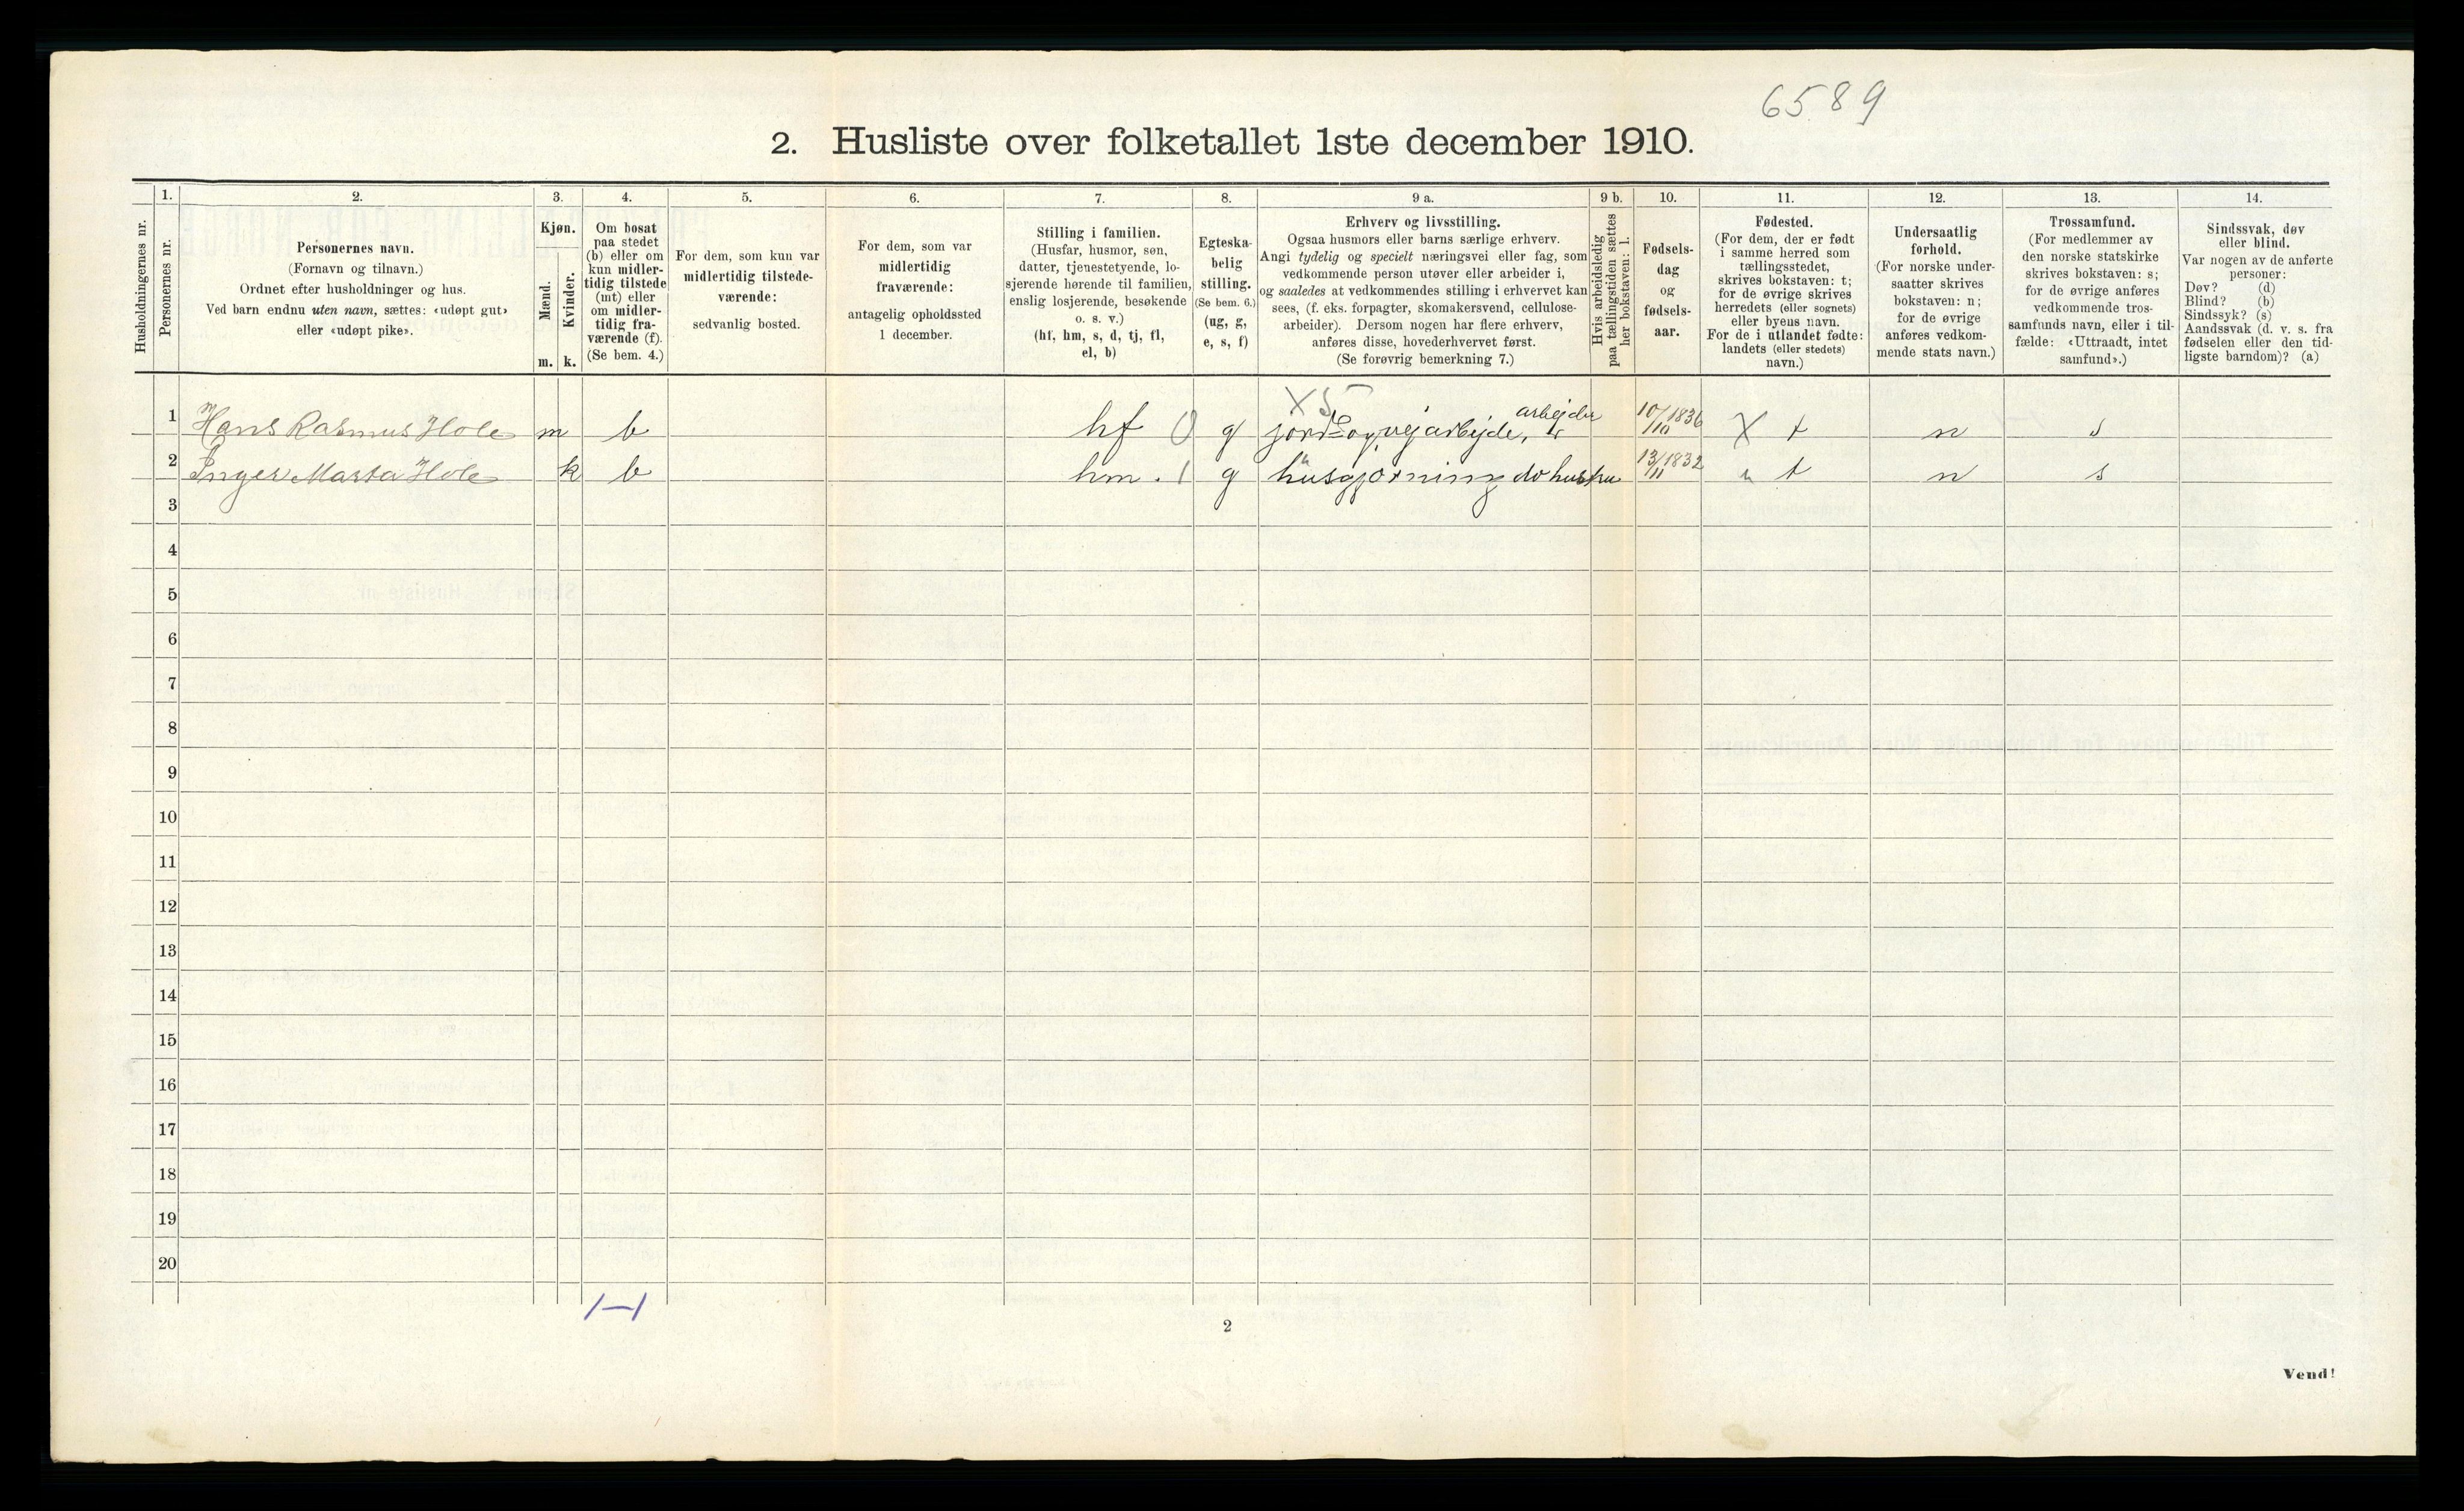 6589
2. Husliste over folketallet 1ste december 1910.
Husholdningernes nr.
1.
Personernes nr.
2.
Personernes navn.
(Fornavn og tilnavn.)
Ordnet efter husholdninger og hus.
Ved barn endnu uten navn, sættes: «udøpt gut»
eller «udøpt pike».
3.
Kjøn.
Mænd.
m.
Kvinder.
k.
4.
Om bosat
paa stedet
(b) eller om
kun midler-
tidig tilstede
(mt) eller
om midler-
tidig fra-
værende (f).
(Se bem. 4.)
5.
For dem, som kun var
midlertidig tilstede-
værende:
sedvanlig bosted.
6.
For dem, som var
midlertidig
fraværende:
antagelig opholdssted
1 december.
7.
Stilling i familien.
(Husfar, husmor, søn,
datter, tjenestetyende, lo-
sjerende hørende til familien,
enslig losjerende, besøkende
o. s. v.)
(hf, hm, s, d, tj, fl,
el, b)
8.
Egteska-
belig
stilling.
(Se bem. 6.)
(ug, g,
e, s, f)
9 a.
Erhverv og livsstilling.
Ogsaa husmors eller barns særlige erhverv.
Angi tydelig og specielt næringsvei eller fag, som
vedkommende person utøver eller arbeider i,
og saaledes at vedkommendes stilling i erhvervet kan
sees, (f. eks. forpagter, skomakersvend, cellulose-
arbeider). Dersom nogen har flere erhverv,
anføres disse, hovederhvervet først.
(Se forøvrig bemerkning 7.)
9 b.
Hvis arbeidsledig
paa tællingstiden sættes
her bokstaven: l.
10.
Fødsels-
dag
og
fødsels-
aar.
11.
Fødested.
(For dem, der er født
i samme herred som
tællingsstedet,
skrives bokstaven: t;
for de øvrige skrives
herredets (eller sognets)
eller byens navn.
For de i utlandet fødte:
landets (eller stedets)
navn.)
12.
Undersaatlig
forhold.
(For norske under-
saatter skrives
bokstaven: n;
for de øvrige
anføres vedkom-
mende stats navn.)
13.
Trossamfund.
(For medlemmer av
den norske statskirke
skrives bokstaven: s;
for de øvrige anføres
vedkommende tros-
samfunds navn, eller i til-
fælde: «Uttraadt, intet
samfund».)
14.
Sindssvak, døv
eller blind.
Var nogen av de anførte
personer:
Døv? (d)
Blind? (b)
Sindssyk? (s)
Aandssvak (d. v. s. fra
fødselen eller den tid-
ligste barndom)? (a)
1 Hans Rasmus Hole m b hf 0 g X 5 jord- og vejarbejde, arbejder 10/10 1836 X t n s
2 Inger Marta Hole k b hm. 1 g husgjørning do hustru 13/11 1832 t n s
3
4
5
6
7
8
9
10
11
12
13
14
15
16
17
18
19
20
1–1
2
Vend!